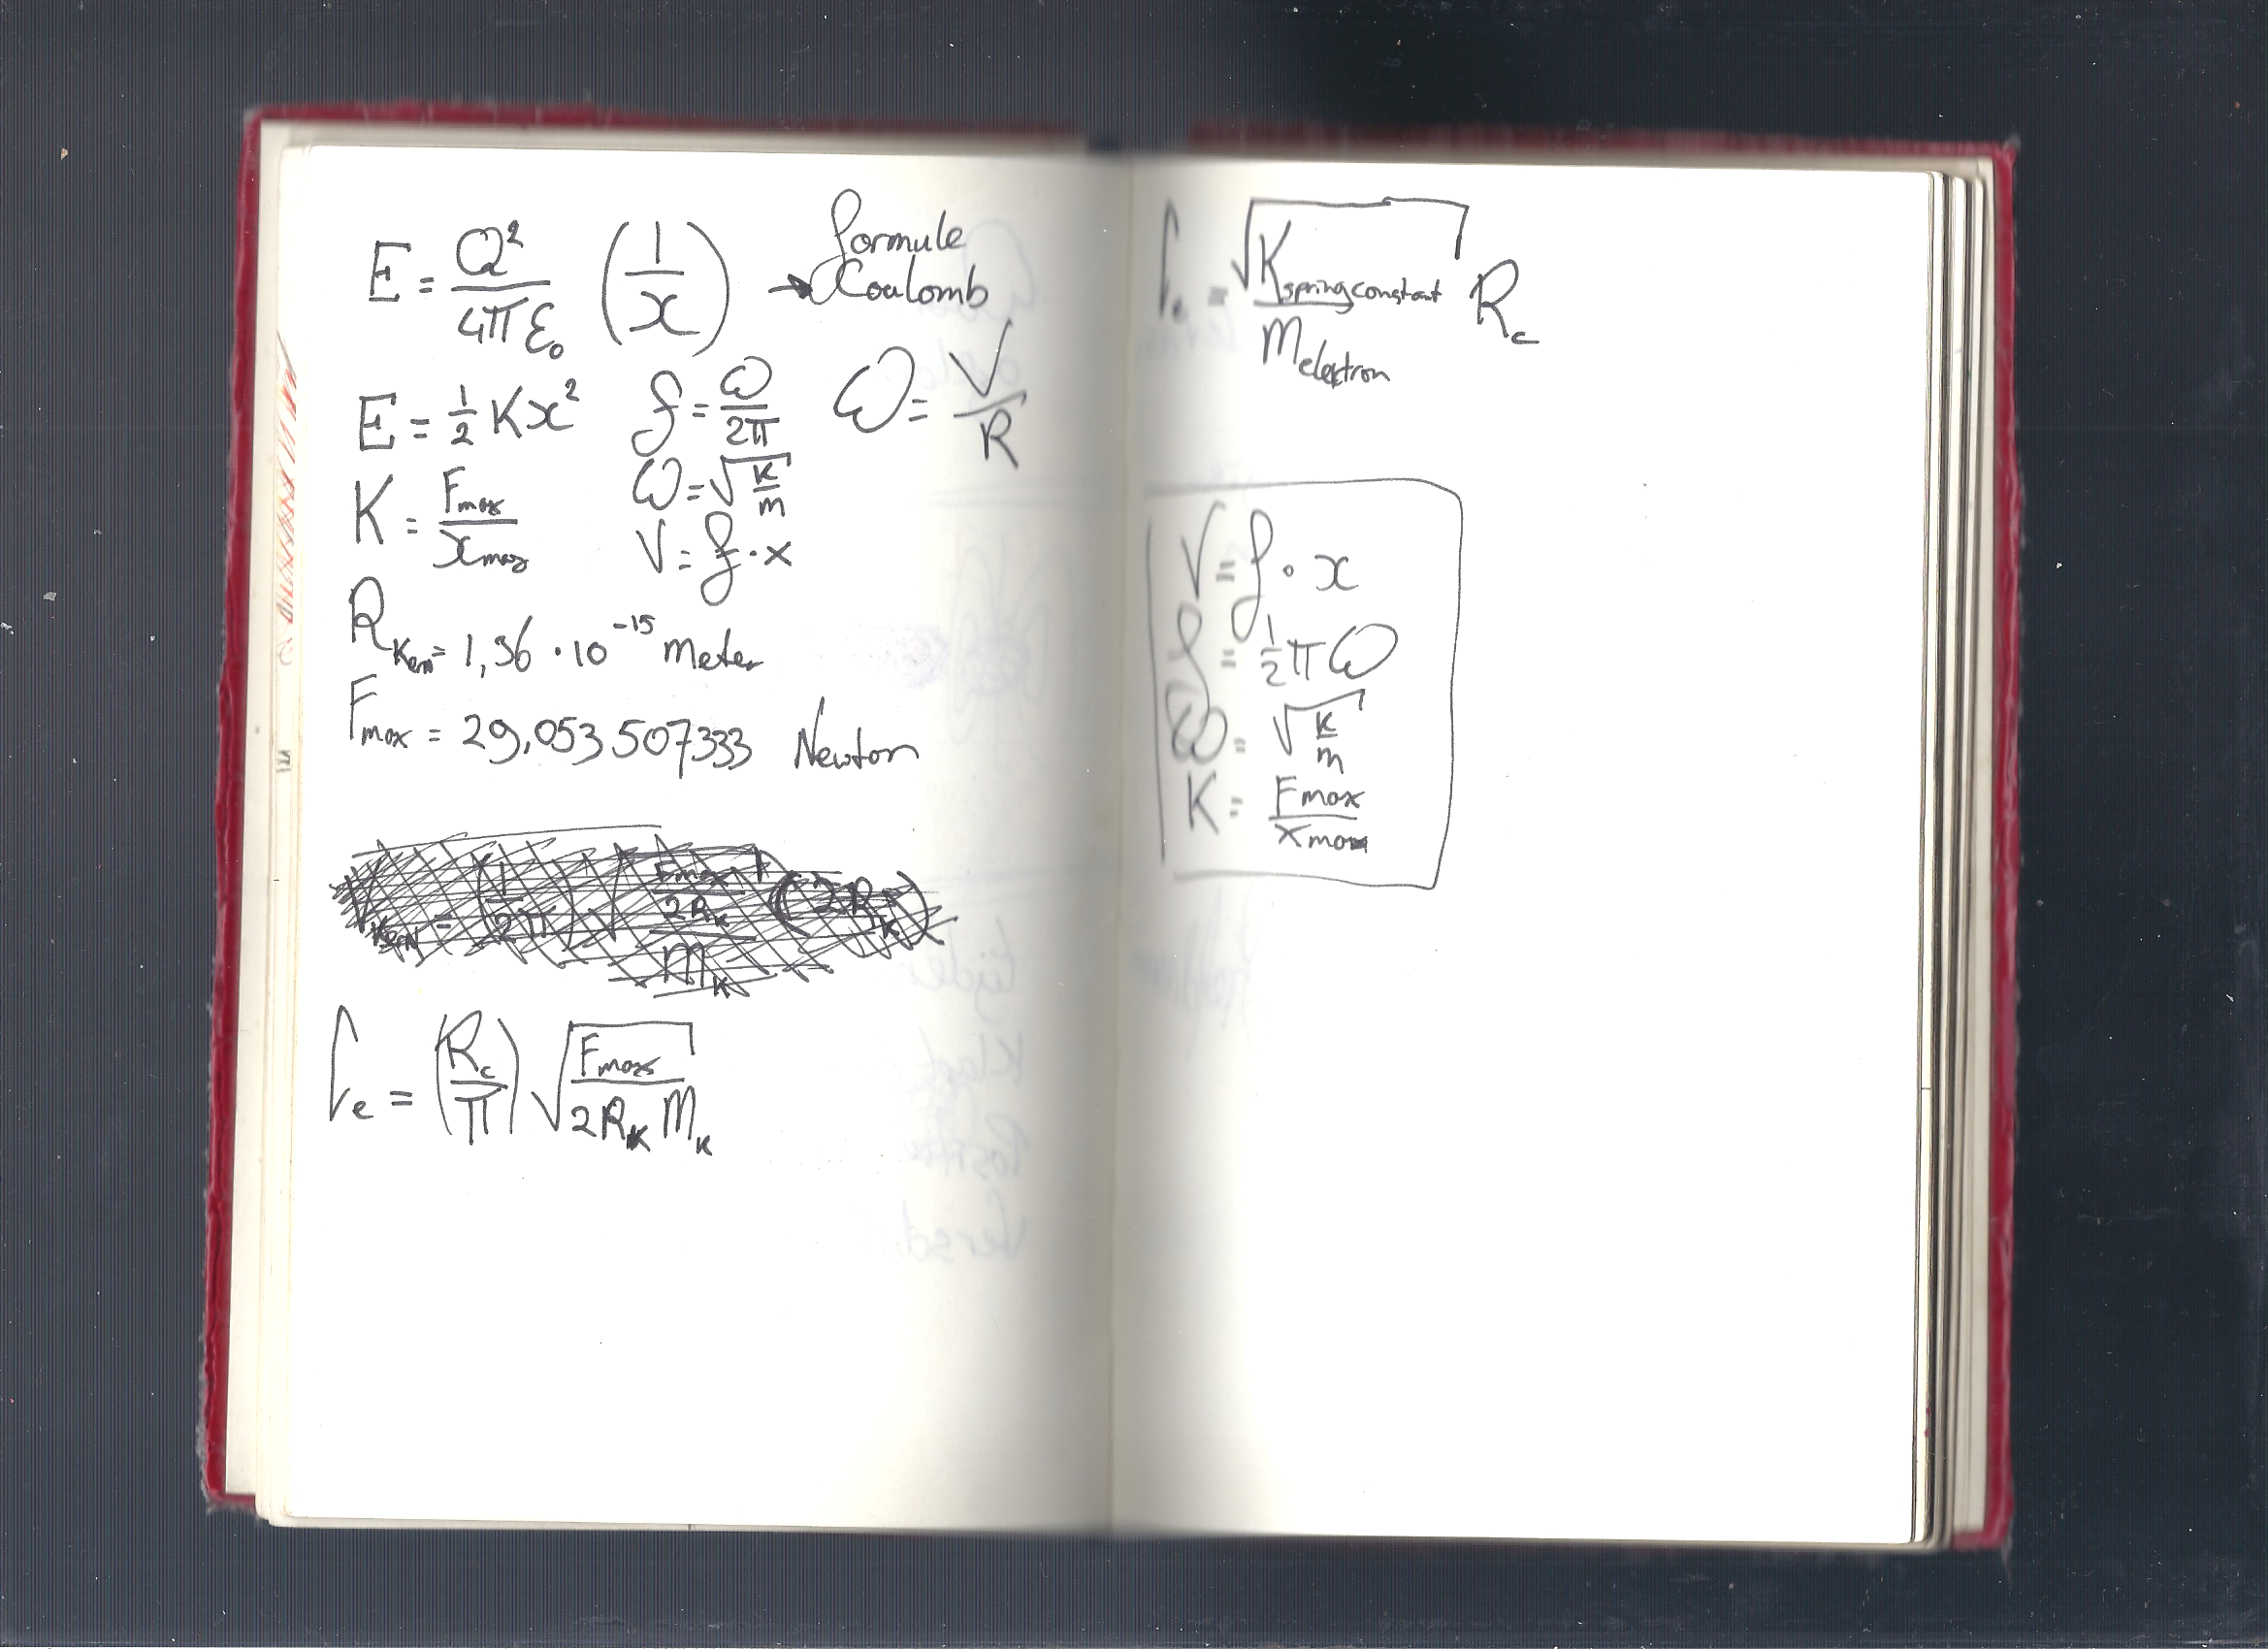 E = Q²/4πε₀ (1/x) → formule Coulomb
E = ½Kx² f = ω/2π ω = V/R
K = Fmax/xmax ω = √(K/m)
V = f·x
R_Kern = 1,36 · 10⁻¹⁵ meter
Fmax = 29,053507333 Newton
V_kern = (1/2π) √((Fmax/2R_K)/m_K) (2R_K)
Γe = (R_c/π) √(Fmax/2R_K m_K)
Γe = √(K springconstant/M elektron) R_c
V = f · x
f = ½πω
ω = √(K/m)
K = Fmax/xmax